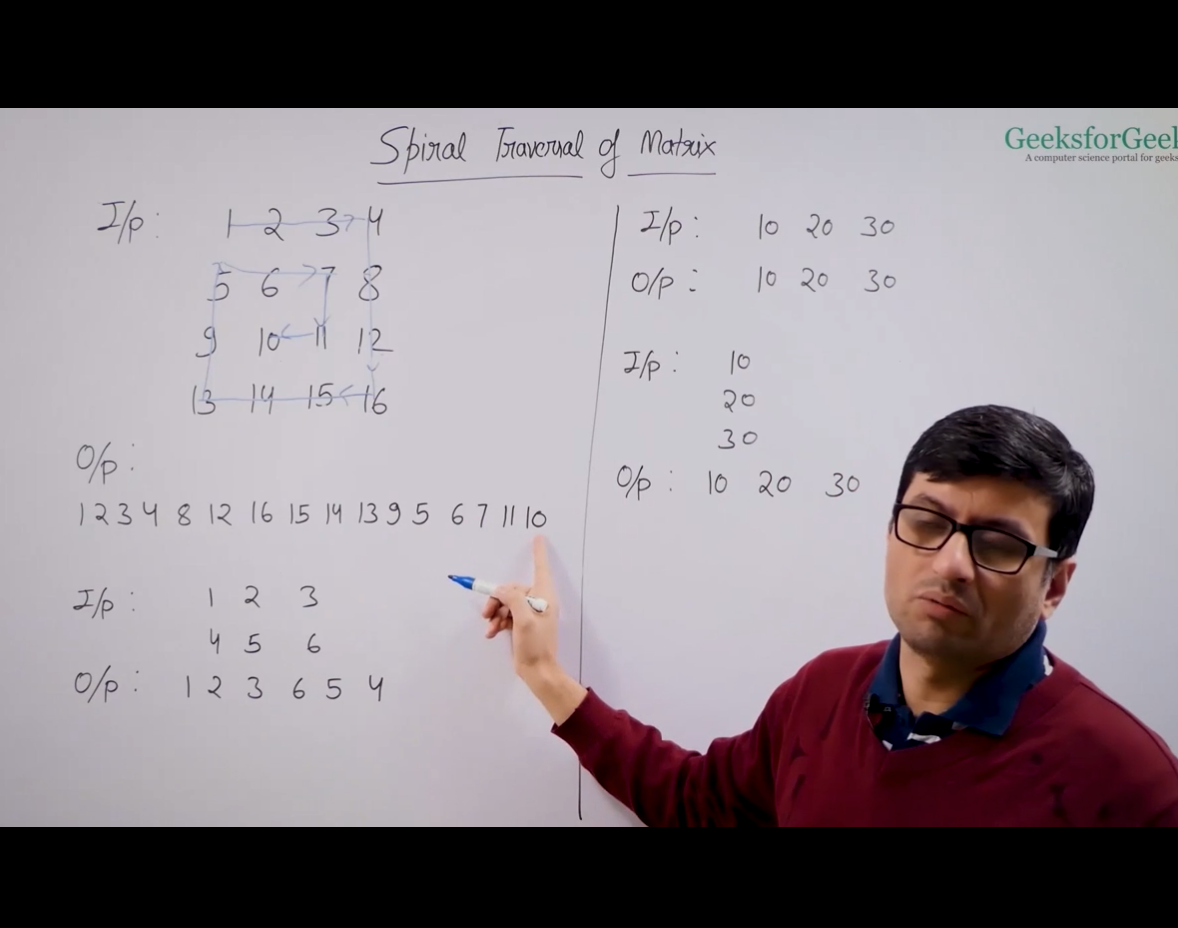 Spiral Traversal of Matrix
GeeksforGeek
A computer science portal for geeks
I/p: 1 2 3 4
5 6 7 8
9 10 11 12
13 14 15 16
O/p:
1 2 3 4 8 12 16 15 14 13 9 5 6 7 11 10
I/p: 1 2 3
4 5 6
O/p: 1 2 3 6 5 4
I/p: 10 20 30
O/p: 10 20 30
I/p: 10
20
30
O/p: 10 20 30